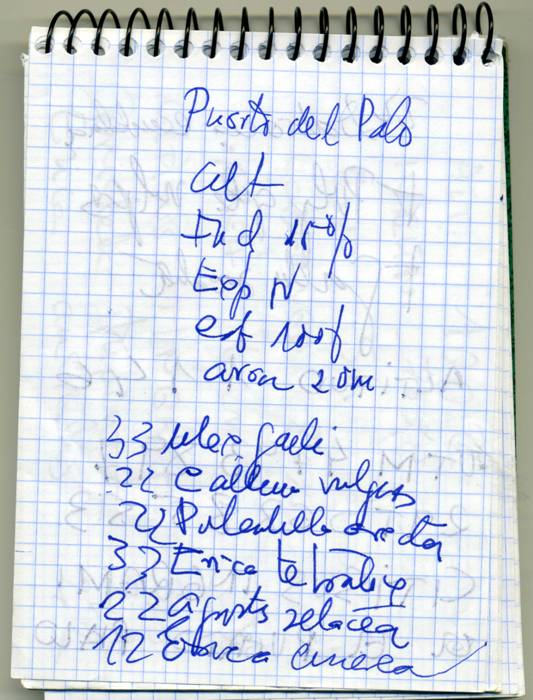 Puerto del Palo
alt
Incl 15%
Exp N
cob 100%
area 20m
33 Ulex galii
22 Calluna vulgaris
22 Potentilla erecta
33 Erica tetralix
22 Agrostis setacea
12 Erica cinerea